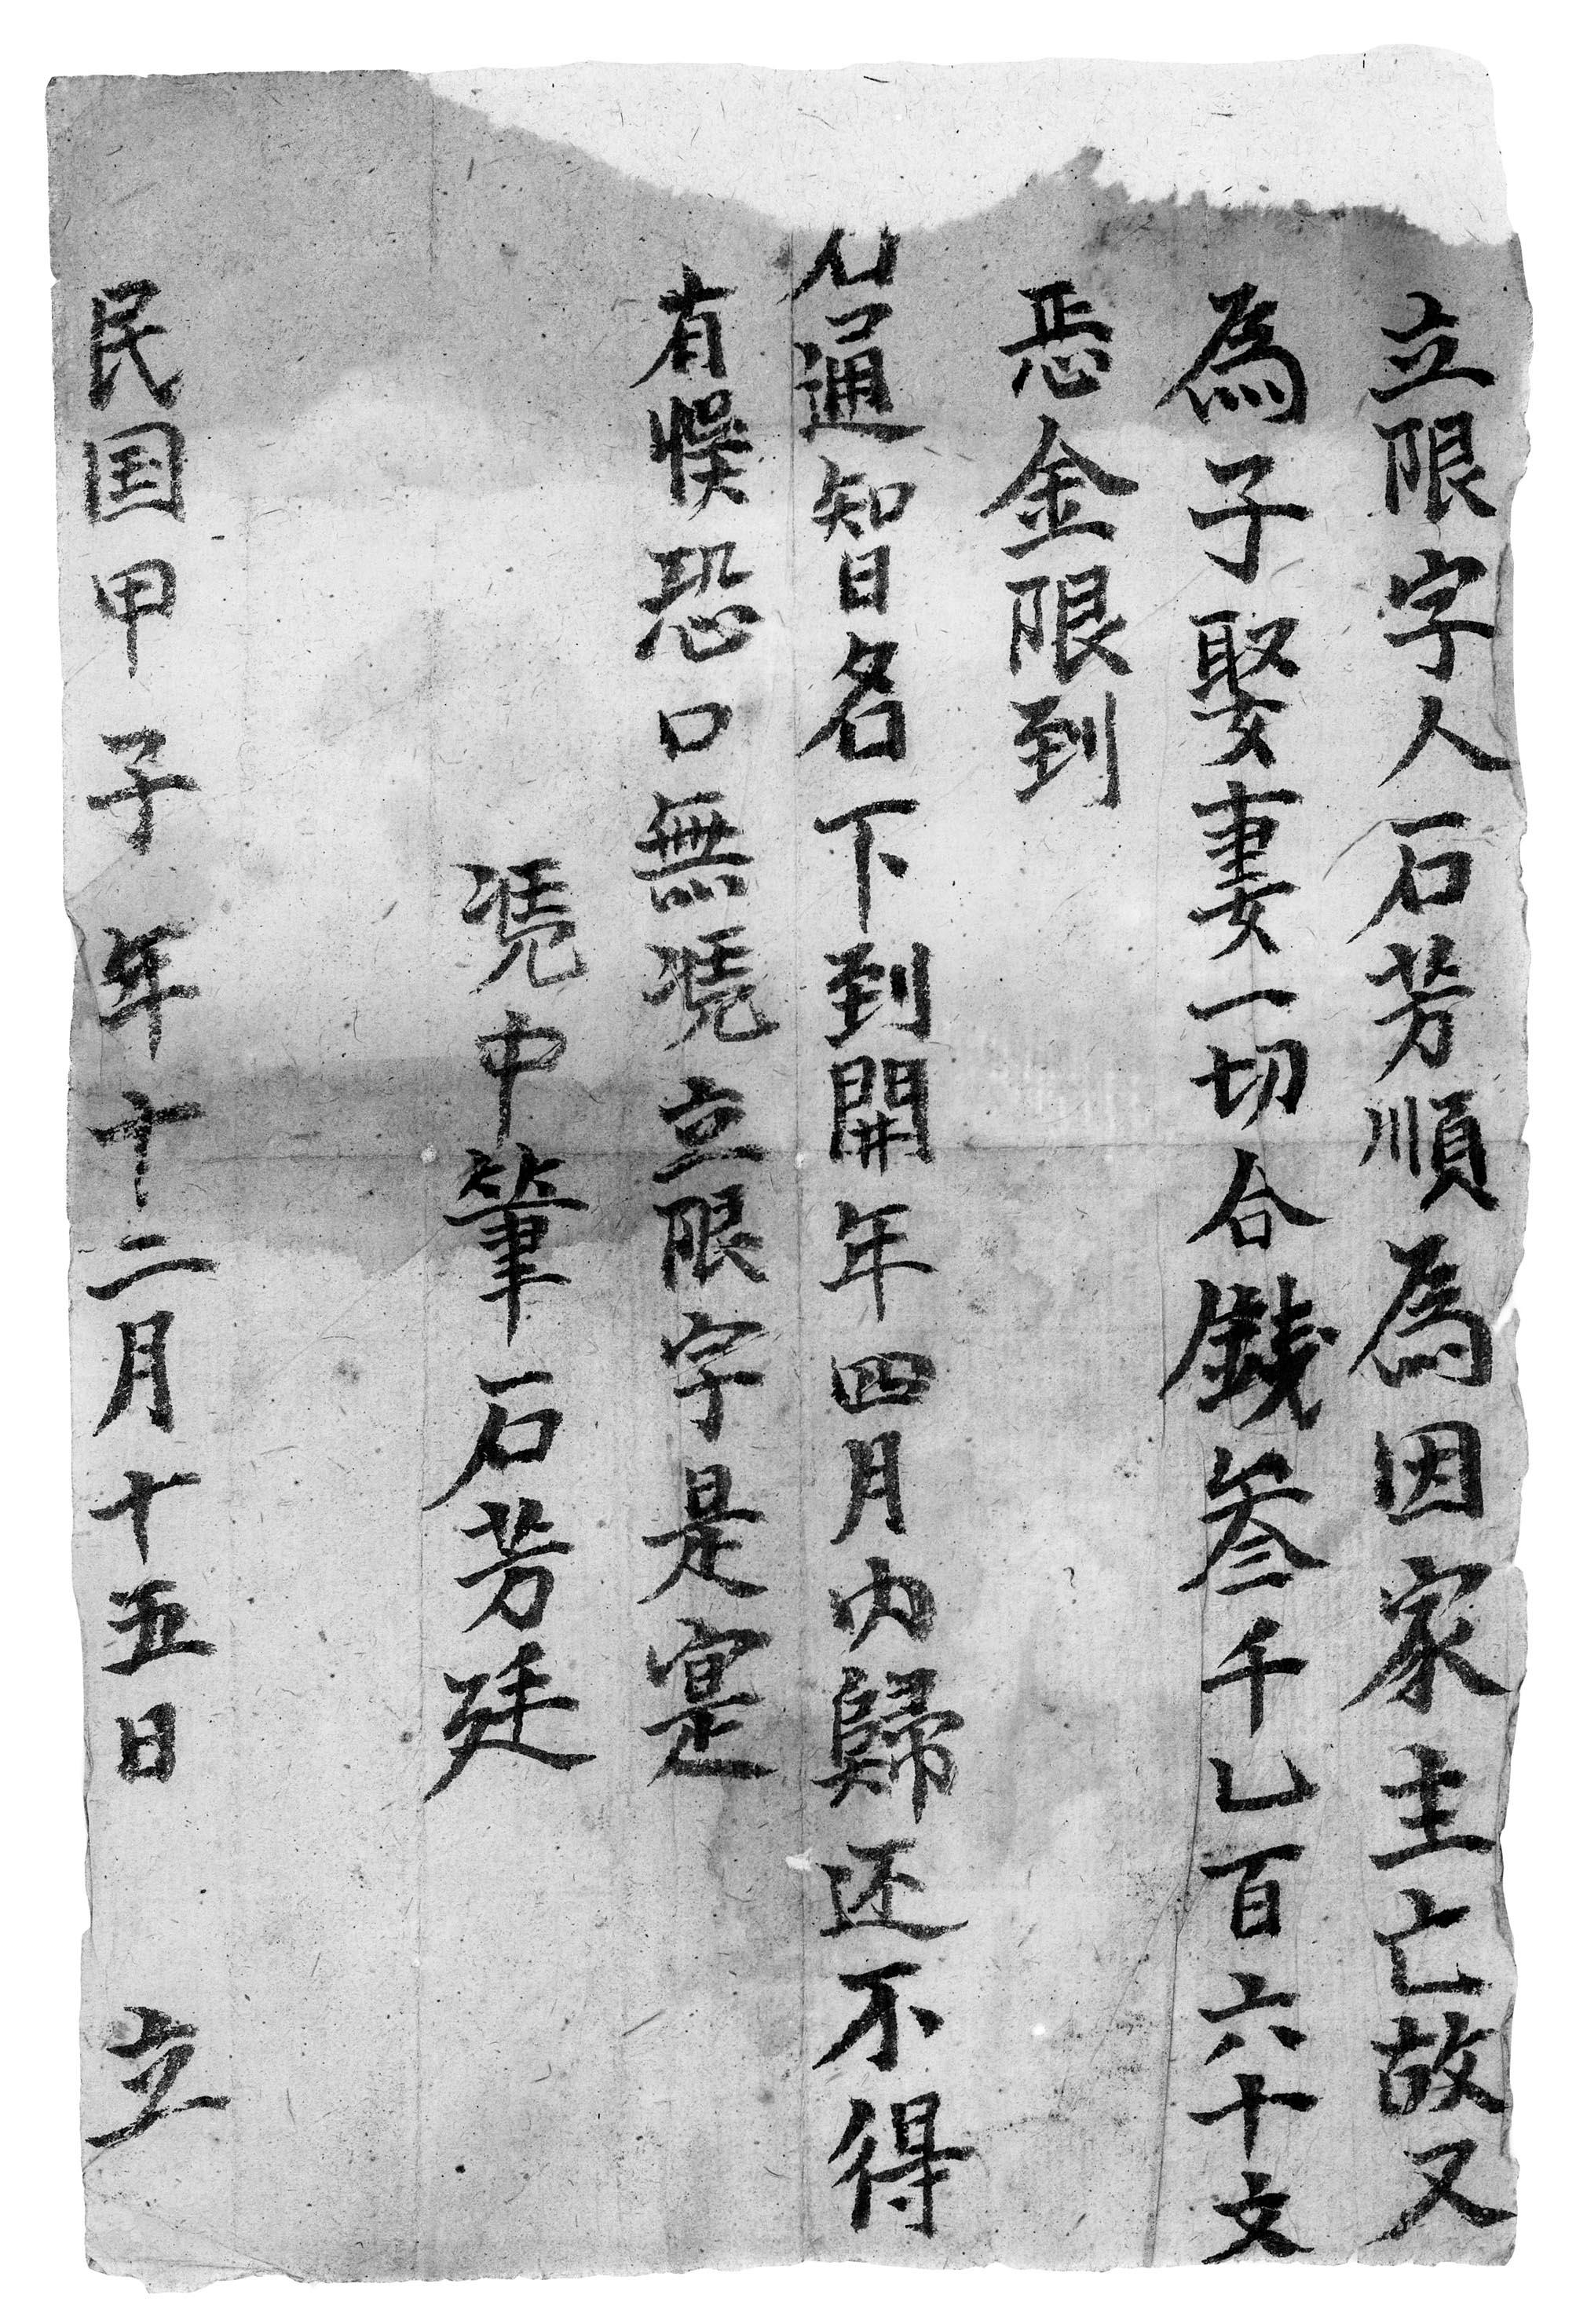 立限字人石芳順為因家主亡故又
為子娶妻一切合錢叁千乚百六十文
恶金限到
石通智名下到開年四月内歸还不得
有悮恐口無凴立限字是寔
凴中筆石芳廷
民国甲子年十二月十五日 立